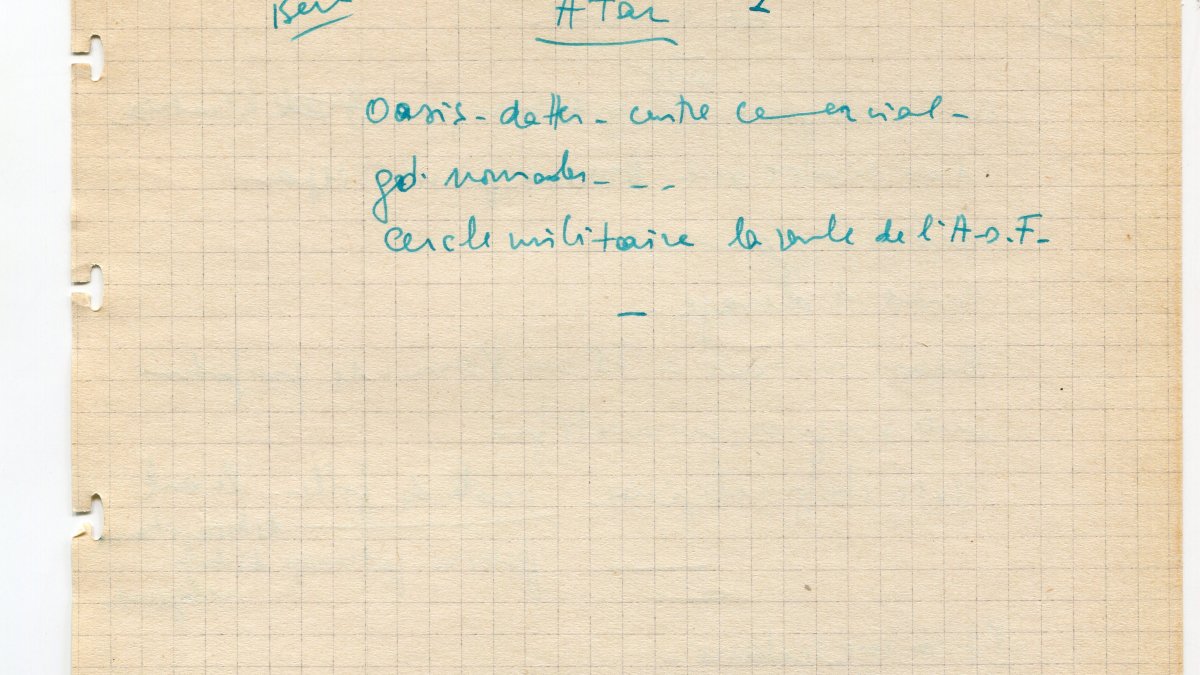 Atar
Oasis - dattes - centre commercial -
gd. nomades - - -
cercle militaire la seule de l'A.O.F.